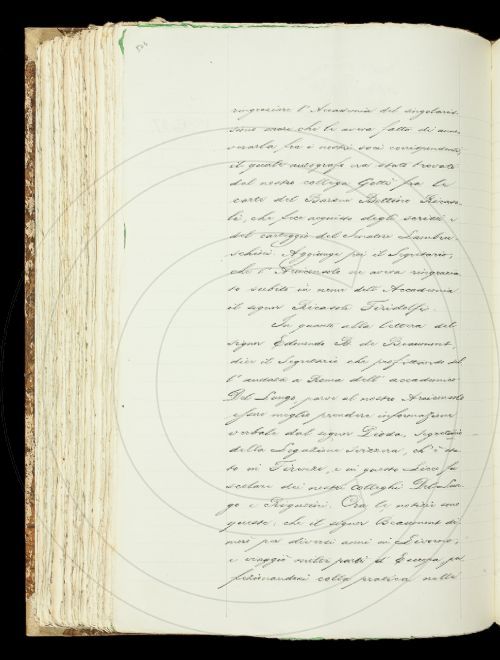 ringraziare l'Accademia del singolaris-
simo onore che le aveva fatto di anno-
verarla fra i nostri soci corrispondenti,
il quale autografo era stato trovato
dal nostro collega Gotti fra le
carte del Barone Bettino Ricaso-
li, che fece acquisto degli scritti e
del carteggio del Senatore Lambru-
schini. Aggiunge poi il Segretario,
che l'Arciconsolo ne aveva ringrazia-
to subito in nome dell'Accademia
il signor Ricasoli Firidolfi.
In quanto alla lettera del
signor Edmondo B. de Beaumont,
dice il Segretario che profittando del-
l'andata a Roma dell'accademico
Del Lungo parve al nostro Arciconsolo
esser meglio prendere informazioni
verbali dal signor Pioda, Segretario
della Legazione Svizzera, ch'è sta-
to in Firenze, e in questo Liceo fu
scolare dei nostri colleghi Del Lun-
go e Rigutini. Ora le notizie sono
queste: che il signor Beaumont di-
morò per diversi anni in Livorno,
e viaggiò molte parti d'Europa, per
fezionandosi colla pratica nelle